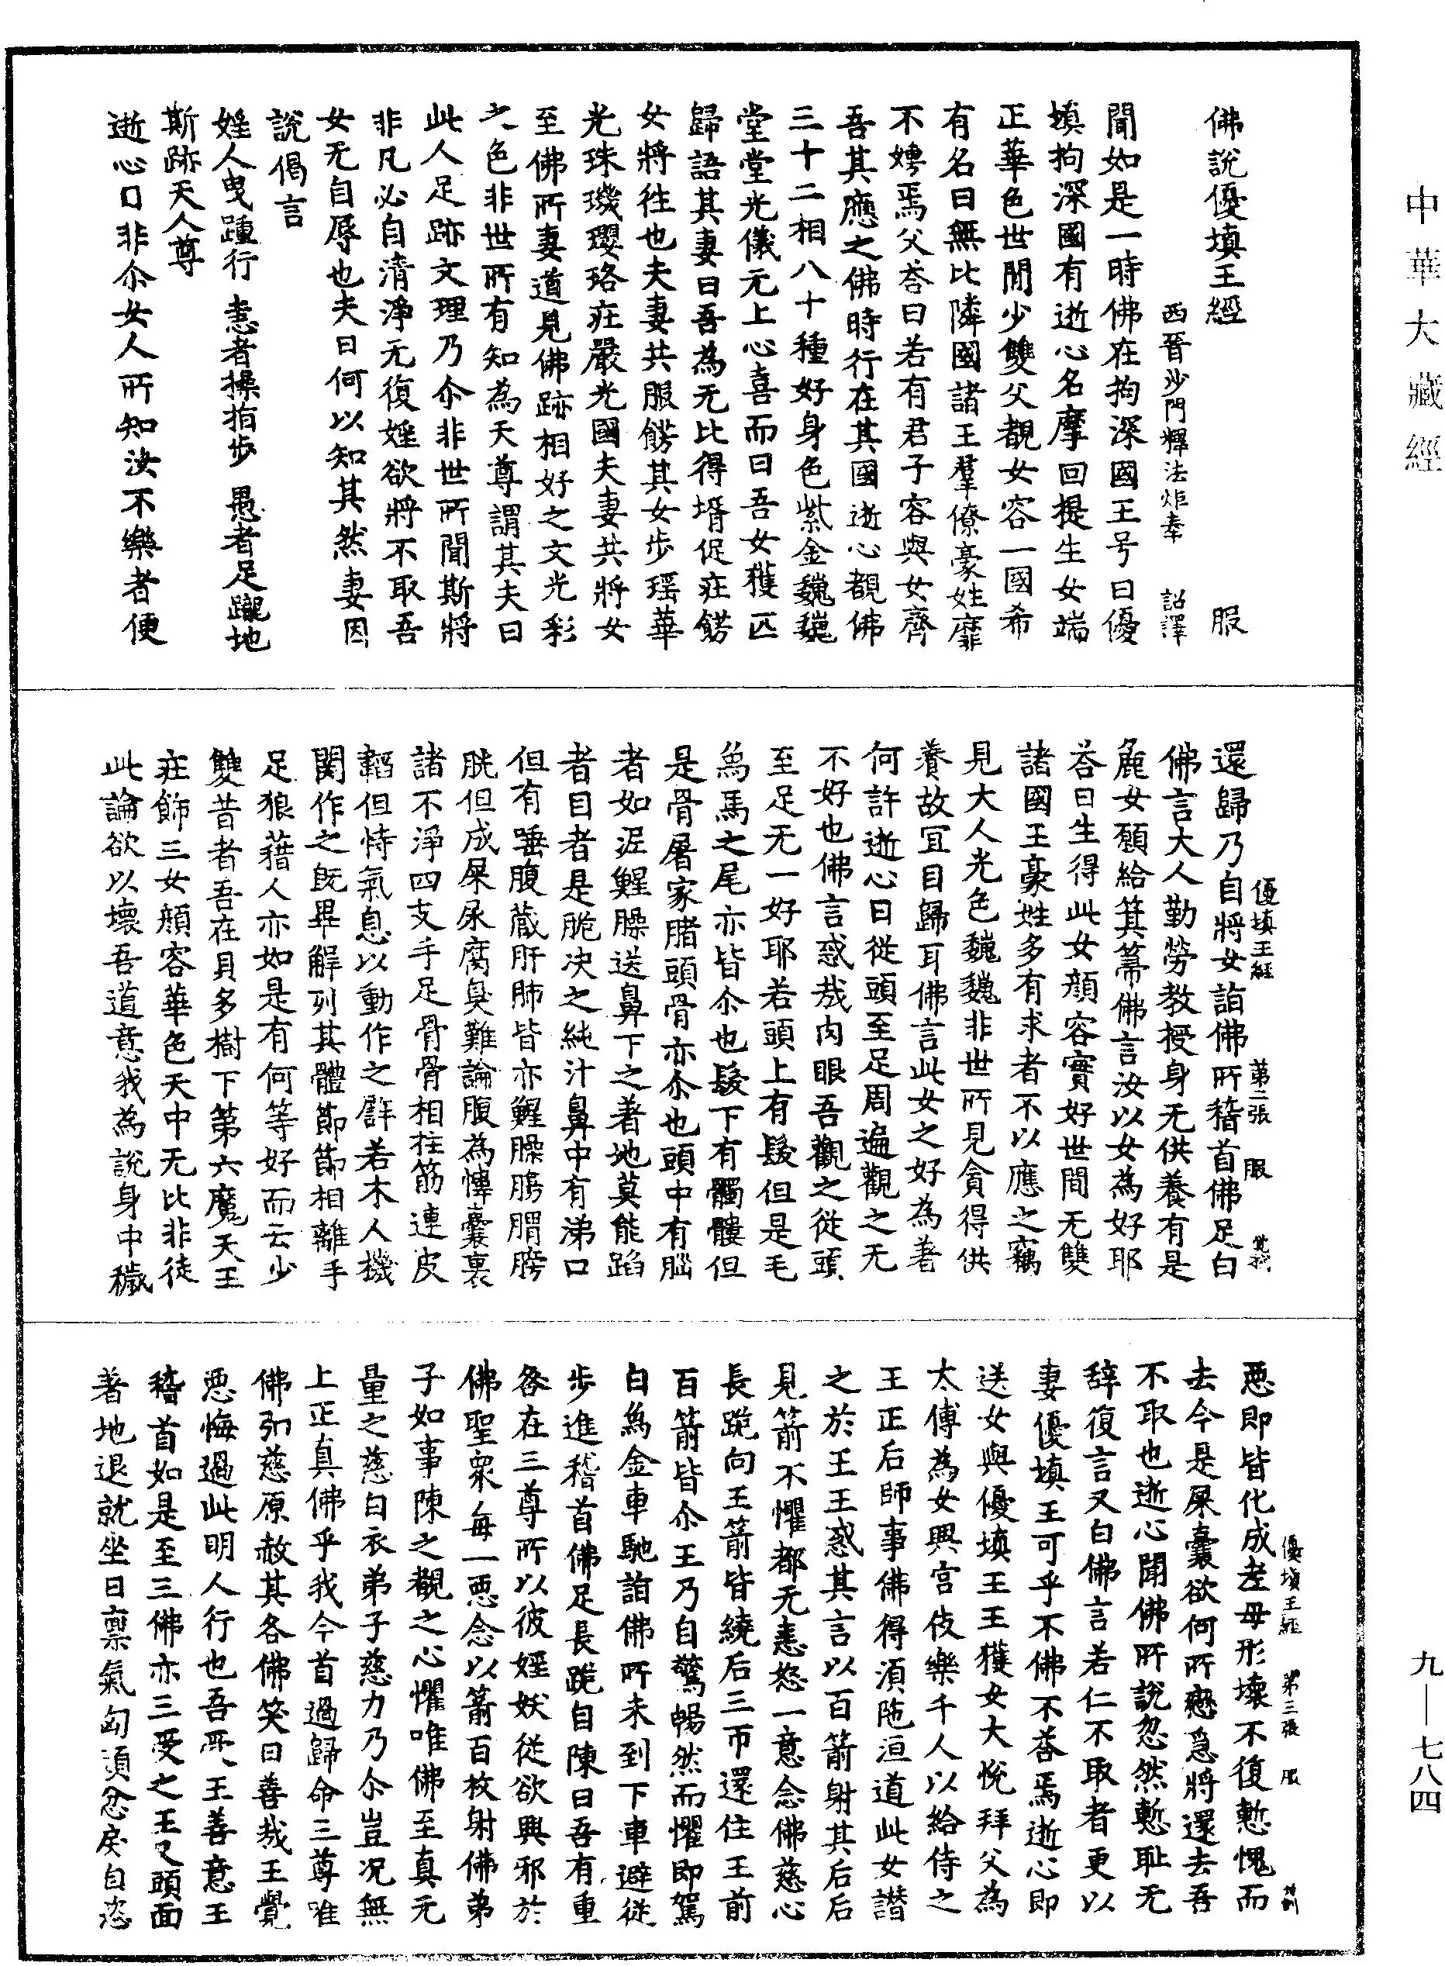 中華大藏經
佛說優填王經　服
西晉沙門釋法炬奉　詔譯
聞如是一時佛在拘深國王号曰優
填拘深國有逝心名摩回提生女端
正華色世間少雙父覩女容一國希
有名曰無比隣國諸王羣僚豪姓靡
不娉焉父荅曰若有君子容與女齊
吾其應之佛時行在其國逝心覩佛
三十二相八十種好身色紫金巍巍
堂堂光儀无上心喜而曰吾女獲匹
歸語其妻曰吾為无比得壻促莊餝
女將往也夫妻共服餝其女步瑶華
光珠璣瓔珞莊嚴光國夫妻共將女
至佛所妻道見佛跡相好之文光彩
之色非世所有知為天尊謂其夫曰
此人足跡文理乃尒非世所聞斯將
非凡必自清淨无復婬欲將不取吾
女无自辱也夫曰何以知其然妻因
說偈言
婬人曳踵行　恚者操指步　愚者足蹴地
斯跡天人尊
逝心曰非尒女人所知汝不樂者便
優填王經　第二張　服
還歸乃自將女詣佛所稽首佛足白
佛言大人勤勞教授身无供養有是
麁女願給箕箒佛言汝以女為好耶
荅曰生得此女顔容實好世間无雙
諸國王豪姓多有求者不以應之竊
見大人光色巍巍非世所見貪得供
養故冝目歸耳佛言此女之好為著
何許逝心曰從頭至足周遍觀之无
不好也佛言惑哉肉眼吾觀之從頭
至足无一好耶若頭上有髮但是毛
為馬之尾亦皆尒也髮下有髑髏但
是骨屠家猪頭骨亦尒也頭中有腦
者如泥鯹臊送鼻下之著地莫能蹈
者目者是脃決之純汁鼻中有涕口
但有唾腹藏肝肺皆亦鯹臊腸胃膀
胱但成屎尿腐臭難論腹為㙛囊裹
諸不淨四支手足骨骨相拄筋連皮
韜但恃氣息以動作之辟若木人機
関作之旣畢解列其體節節相離手
足狼藉人亦如是有何等好而云少
雙昔者吾在貝多樹下第六魔天王
莊飾三女顔容華色天中无比非徒
此論欲以壞吾道意我為說身中穢
優填王經　第三張　服
惡即皆化成老母形壞不復慙愧而
去今是屎囊欲何所戀急將還去吾
不取也逝心聞佛所說忽然慙耻无
辭復言又白佛言若仁不取者更以
妻優填王可乎不佛不荅焉逝心即
送女與優填王王獲女大悅拜父為
太傅為女興宮伎樂千人以給侍之
王正后師事佛得湏陁洹道此女譖
之於王王惑其言以百箭射其后后
見箭不懼都无恚怒一意念佛慈心
長跪向王箭皆繞后三帀還住王前
百箭皆尒王乃自驚暢然而懼即駕
白為金車馳詣佛所未到下車避從
步進稽首佛足長跪自陳曰吾有重
咎在三尊所以彼婬妖從欲興邪於
佛聖衆每一惡念以箭百枚射佛弟
子如事陳之覩之心懼唯佛至真无
量之慈白衣弟子慈力乃尒豈况無
上正真佛乎我今首過歸命三尊唯
佛弘慈原赦其各佛笑曰善哉王覺
惡悔過此明人行也吾受王善意王
稽首如是至三佛亦三受之王又頭面
著地退就坐曰稟氣匈頑忿戾自恣
九—七八四